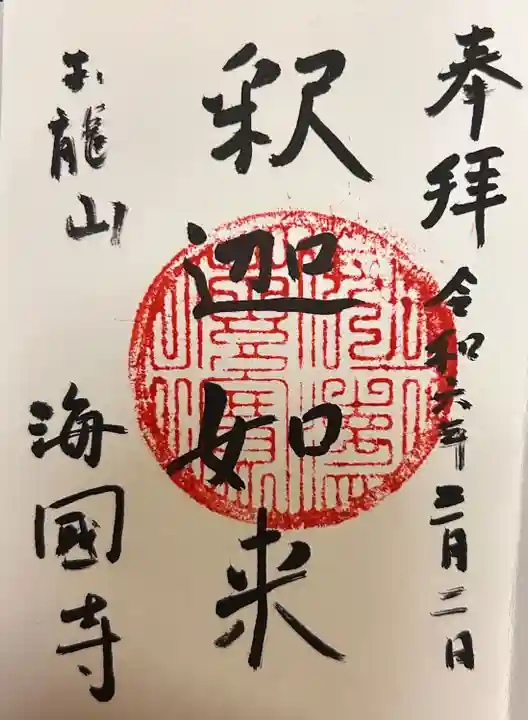 奉拝 令和六年三月二日
釈迦如来
龍山 海國寺